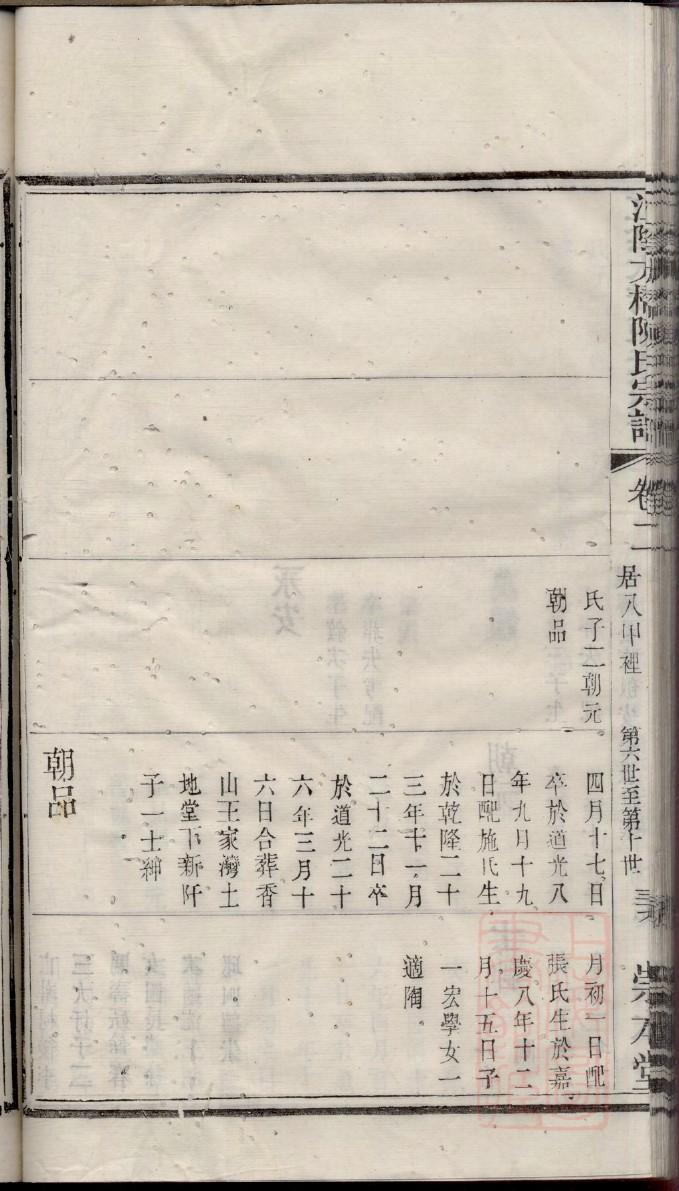 江陰
橋陳氏宗譜
卷二
居八甲裡
第六世至第十世
崇本堂
氏子二朝元
朝品
四月十七日
卒於道光八
年九月十九
日配施氏生
於乾隆二十
三年十一月
二十二日卒
於道光二十
六年三月十
六日合葬香
山王家灣士
地堂下新阡
子一士紳
朝品
月初一日配
張氏生於嘉
慶八年十二
月十五日子
一宏學女一
適陶